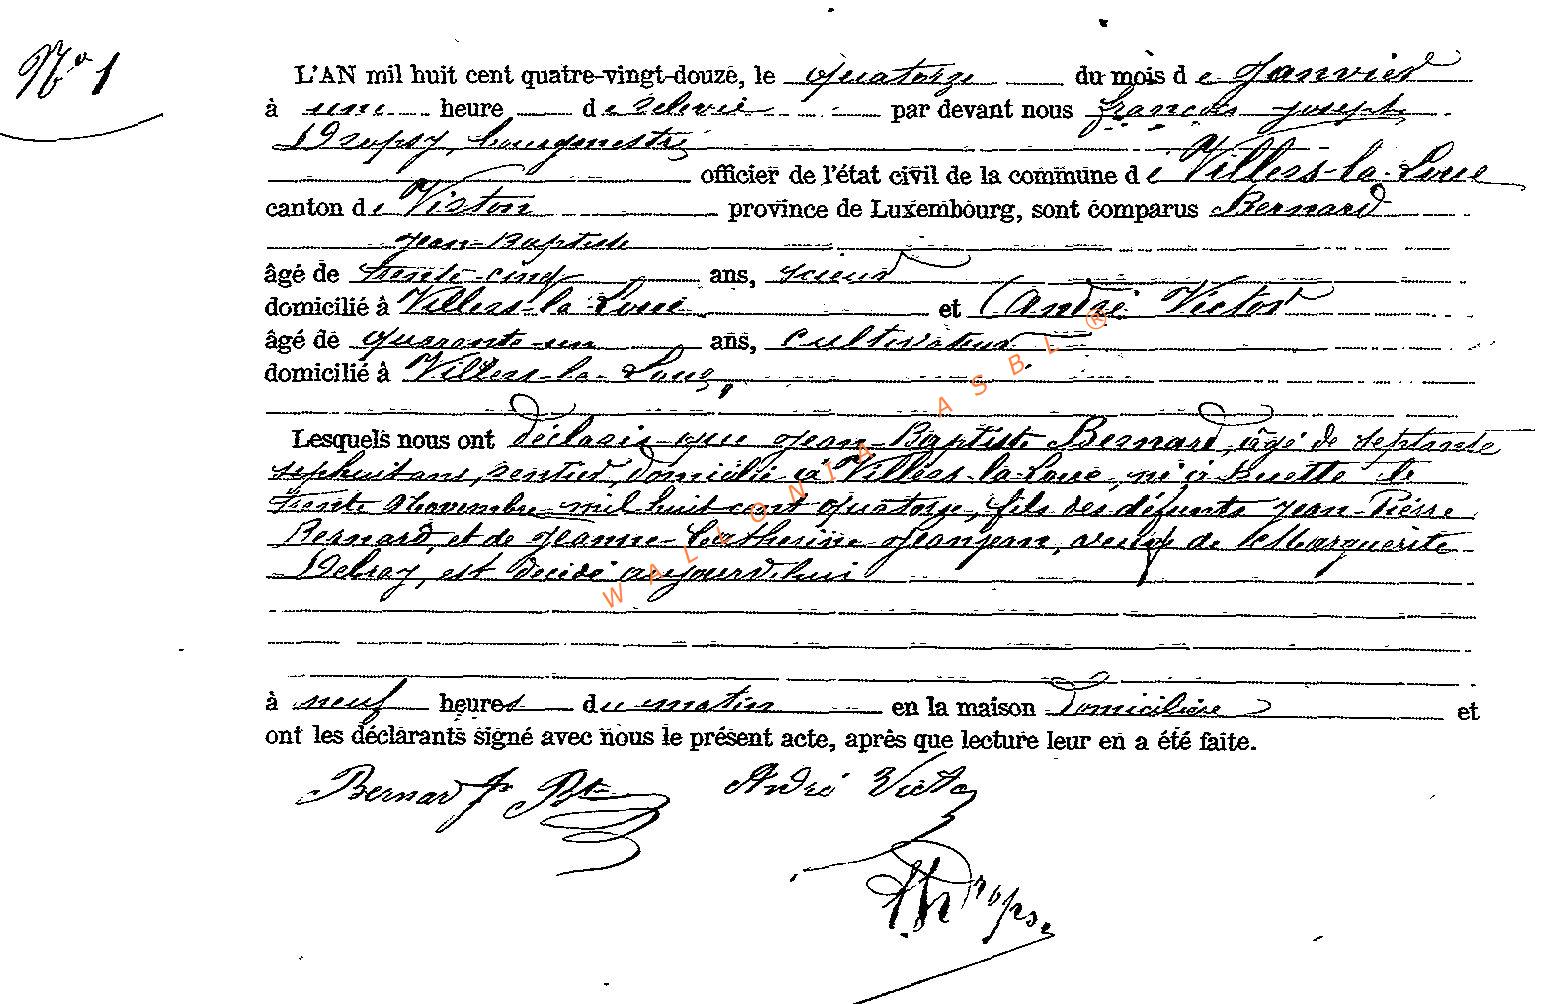 No 1
L'AN mil huit cent quatre-vingt-douze, le quatorze du mois de Janvier
à une heure de relevée par devant nous françois joseph
Dropsy, bourgmestre
officier de l'état civil de la commune de Villers-la-Loue
canton de Virton province de Luxembourg, sont comparus Bernard
Jean-Baptiste
âgé de trente-cinq ans, scieur
domicilié à Villers-la-Loue et André Victor
âgé de quarante-un ans, cultivateur
domicilié à Villers-la-Loue,
Lesquels nous ont déclaré que Jean-Baptiste Bernard, âgé de septante
sephuit ans, rentier, domicilié à Villers-la-Loue, né à Ruette le
trente Novembre mil huit cent quatorze, fils des défunts Jean-Pierre
Bernard, et de Jeanne-Catherine Jeanjean, veuf de Marguerite
Delroy, est décédé aujourd'hui
à neuf heures du matin en la maison domicilière et
ont les déclarants signé avec nous le présent acte, après que lecture leur en a été faite.
Bernard Jn Bte André Victor
Dropsy
WALLONIA ASBL ®